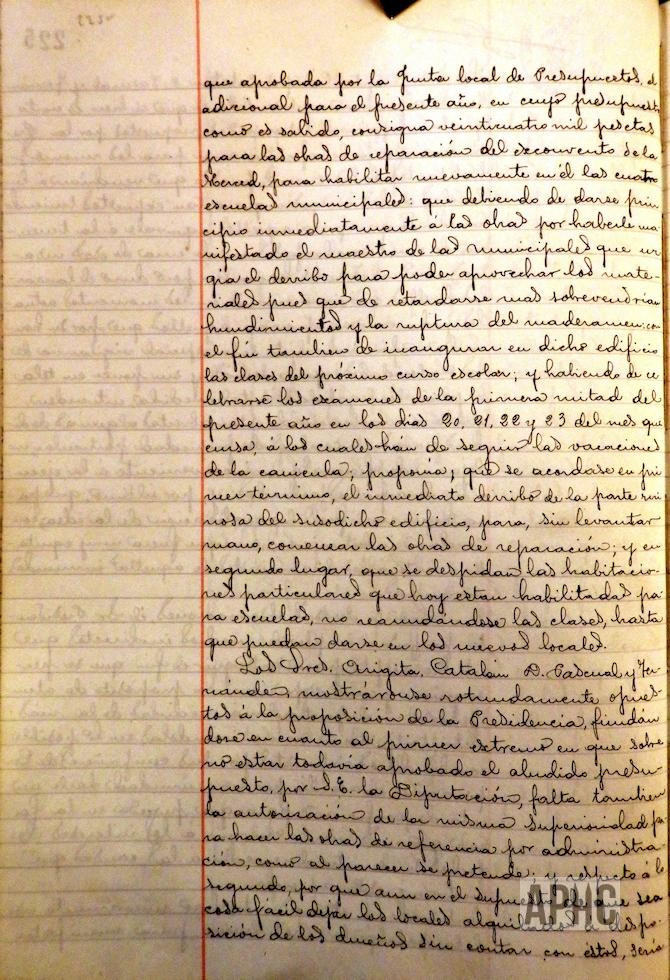 que aprobada por la Junta local de Presupuestos, el
adicional para el presente año, en cuyo presupuesto
como es sabido, consigna veinticuatro mil pesetas
para las obras de reparación del exconvento de la
Merced, para habilitar nuevamente en él las cuatro
escuelas municipales: que debiendo de darse prin
cipio inmediatamente á las obras por haberle ma
nifestado el maestro de las municipales que ur
gía el derribo para poder aprovechar los mate
riales pues que de retardarse mas sobrevendrían
hundimientos y la ruptura del maderamen: con
el fin tambien de inaugurar en dicho edificio
las clases del próximo curso escolar; y habiendo de ce
lebrarse los exámenes de la primera mitad del
presente año en los dias 20, 21, 22 y 23 del mes que
cursa, á los cuales han de seguir las vacaciones
de la canícula; proponia; que se acordase en pri
mer término, el inmediato derribo de la parte rui
nosa del susodicho edificio, para, sin levantar
mano, comenzar las obras de reparación; y en
segundo lugar, que se despidan las habitacio
nes particulares que hoy estan habilitadas pa
ra escuelas, no reanundándese las clases, hasta
que puedan darse en los nuevos locales.
Los Sres. Arigita, Catalán D. Pascual y Fer
nández, mostráronse rotundamente opues
tos á la proposición de la Presidencia, fundán
dose en cuanto al primer extremo en que sobre
no estar todavía aprobado el aludido presu
puesto, por S.E. la Diputación, falta tambien
la autorización de la misma Superioridad pa
ra hacer las obras de referencia por administra
ción, como al parecer se pretende; y respecto á lo
segundo, por que aun en el supuesto de que sea
cosa fácil dejar los locales alquilados a dispo
sición de los dueños sin contar con éstos, sería
APHC